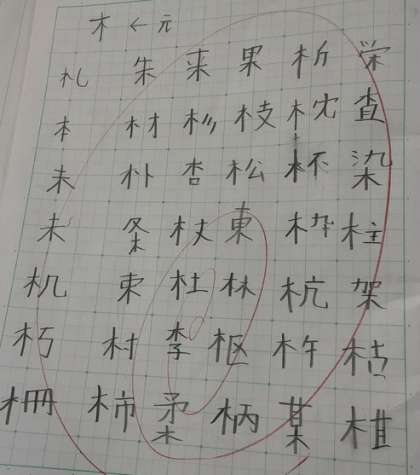 木 ← 元
札 朱 来 果 析 栄
本 材 杉 枝 枕 査
末 朴 杏 松 杯 染
未 条 杖 東 枠 柱
机 束 杜 林 杭 架
朽 村 李 枢 杵 枯
柵 柿 柔 柄 某 柑